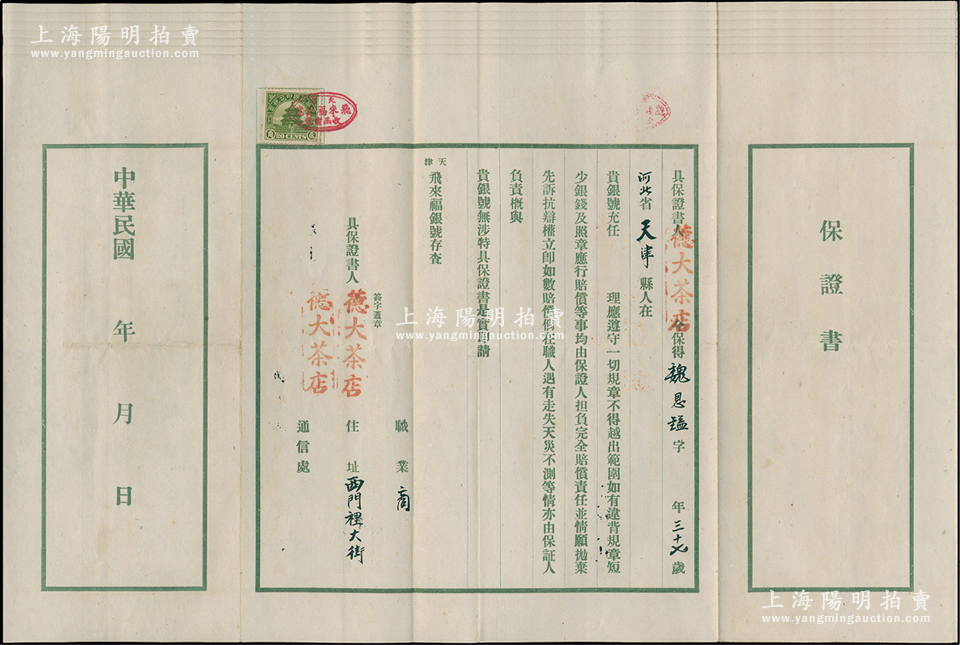 保證書
具保證書人 德大茶店 今保得 魏恩 字 年三十七歲
河北省 天津 縣人在
貴銀號充任 理應遵守一切規章不得越出範圍如有違背規章短
少銀錢及照章應行賠償等事均由保證人担負完全賠償責任並情願拋棄
先訴抗辯權立卽如數賠償倘在職人遇有走失天災不測等情亦由保証人
負責概與
貴銀號無涉特具保證書是實此請
天津
飛來福銀號存查
職業 商
簽字蓋章
具保證書人 德大茶店 住址 西門裡大街
德大茶店
通信處
20 CENTS
中華民國 年 月 日
上海陽明拍賣
www.yangmingauction.com
上海陽明拍賣
www.yangmingauction.com
上海陽明拍賣
www.yangmingauction.com